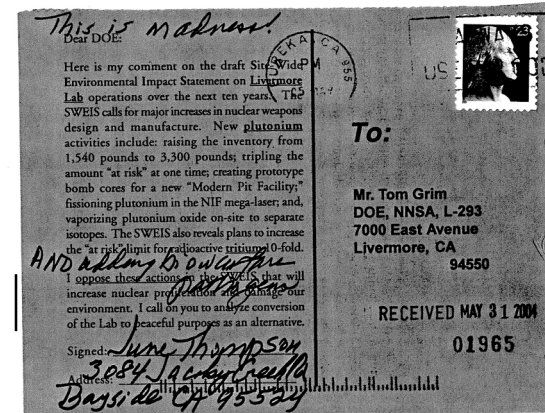 This is madness!
Dear DOE:
Here is my comment on the draft Site Wide
Environmental Impact Statement on Livermore
Lab operations over the next ten years. The
SWEIS calls for major increases in nuclear weapons
design and manufacture. New plutonium
activities include: raising the inventory from
1,540 pounds to 3,300 pounds; tripling the
amount "at risk" at one time; creating prototype
bomb cores for a new "Modern Pit Facility;"
fissioning plutonium in the NIF mega-laser; and,
vaporizing plutonium oxide on-site to separate
isotopes. The SWEIS also reveals plans to increase
the "at risk" limit for radioactive tritium 10-fold.
AND adding biowarfare
pathogens
I oppose these actions in the SWEIS that will
increase nuclear proliferation and damage our
environment. I call on you to analyze conversion
of the Lab to peaceful purposes as an alternative.
Signed: June Thompson
3084 Jacoby Creek Rd
Address:
Bayside CA 95524
EUREKA, CA 955
PM
23
US
To:
Mr. Tom Grim
DOE, NNSA, L-293
7000 East Avenue
Livermore, CA
94550
RECEIVED MAY 31 2004
01965